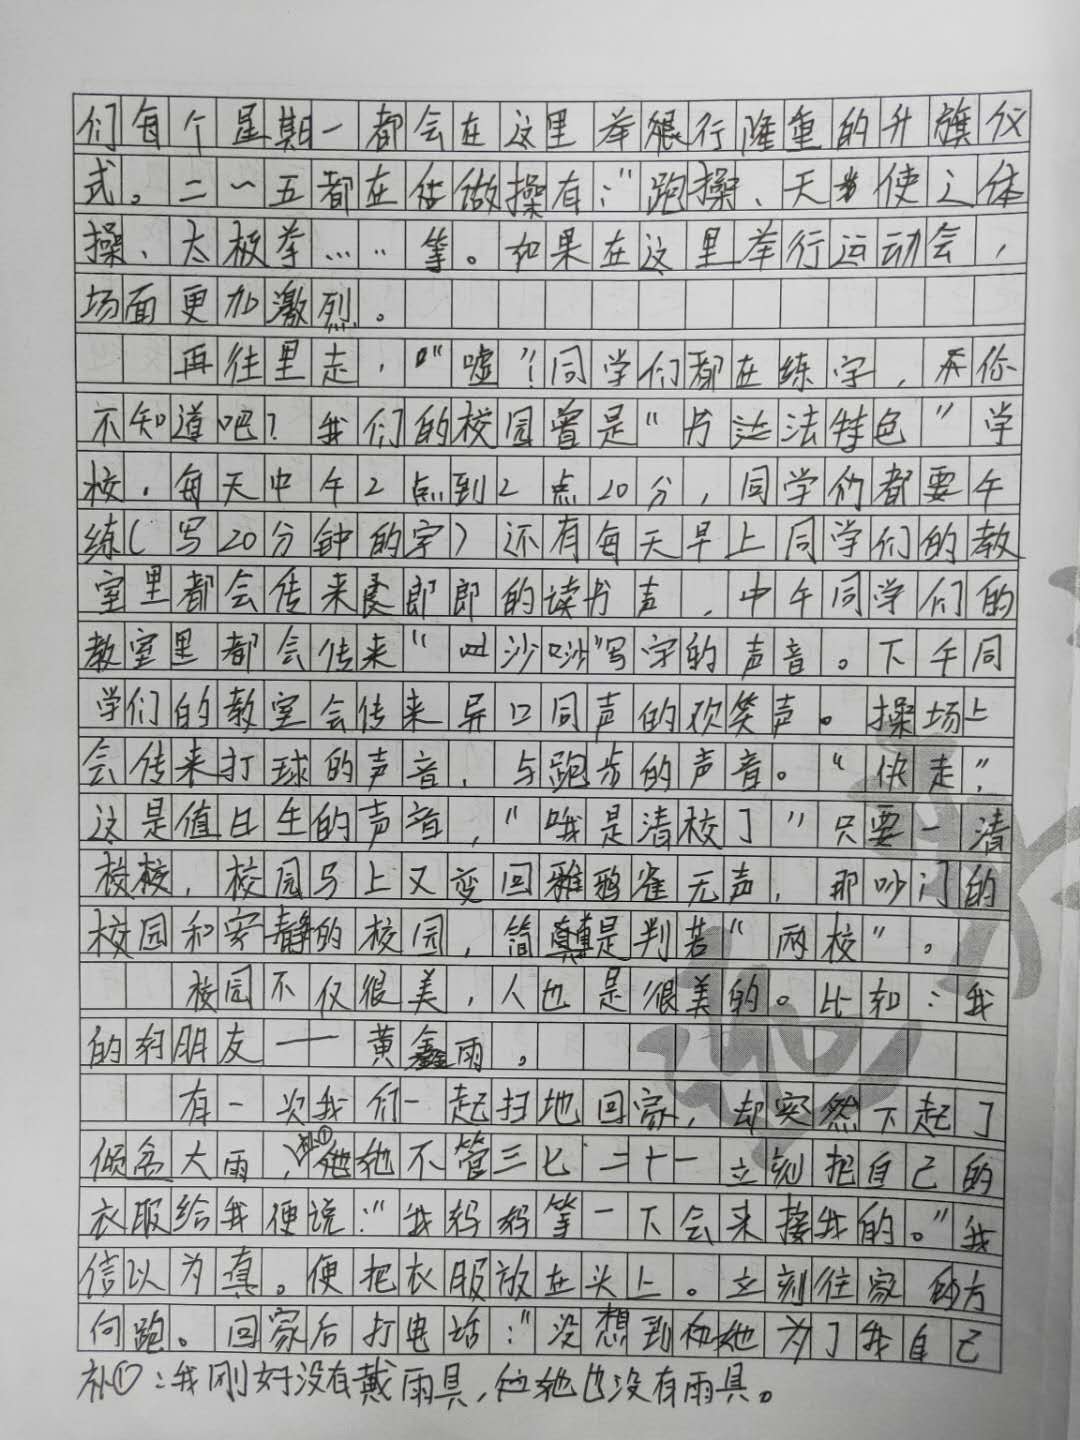 们每个星期一都会在这里举行隆重的升旗仪
式。二～五都在做操有：“跑操、天使之体
操、太极拳……等。如果在这里举行运动会，
场面更加激烈。
再往里走，“嘘”！同学们都在练字，你
不知道吧？我们的校园曾是“书法特色”学
校，每天中午2点到2点20分，同学们都要午
练（写20分钟的字）还有每天早上同学们的教
室里都会传来郎郎的读书声，中午同学们的
教室里都会传来“沙沙”写字的声音。下午同
学们的教室会传来异口同声的欢笑声。操场上
会传来打球的声音，与跑步的声音。“快走”，
这是值日生的声音，“哦是清校了”只要一清
校，校园马上又变回鸦雀无声，那吵门的
校园和安静的校园，简直是判若“两校”。
校园不仅很美，人也是很美的。比如：我
的好朋友——黄鑫雨。
有一次我们一起扫地回家，却突然下起了
倾盆大雨，补①她不管三七二十一立刻把自己的
衣服给我便说：“我妈妈等一下会来接我的。”我
信以为真。便把衣服放在头上。立刻往家的方
向跑。回家后打电话：“没想到她为了我自己
补①：我刚好没有戴雨具，她也没有雨具。